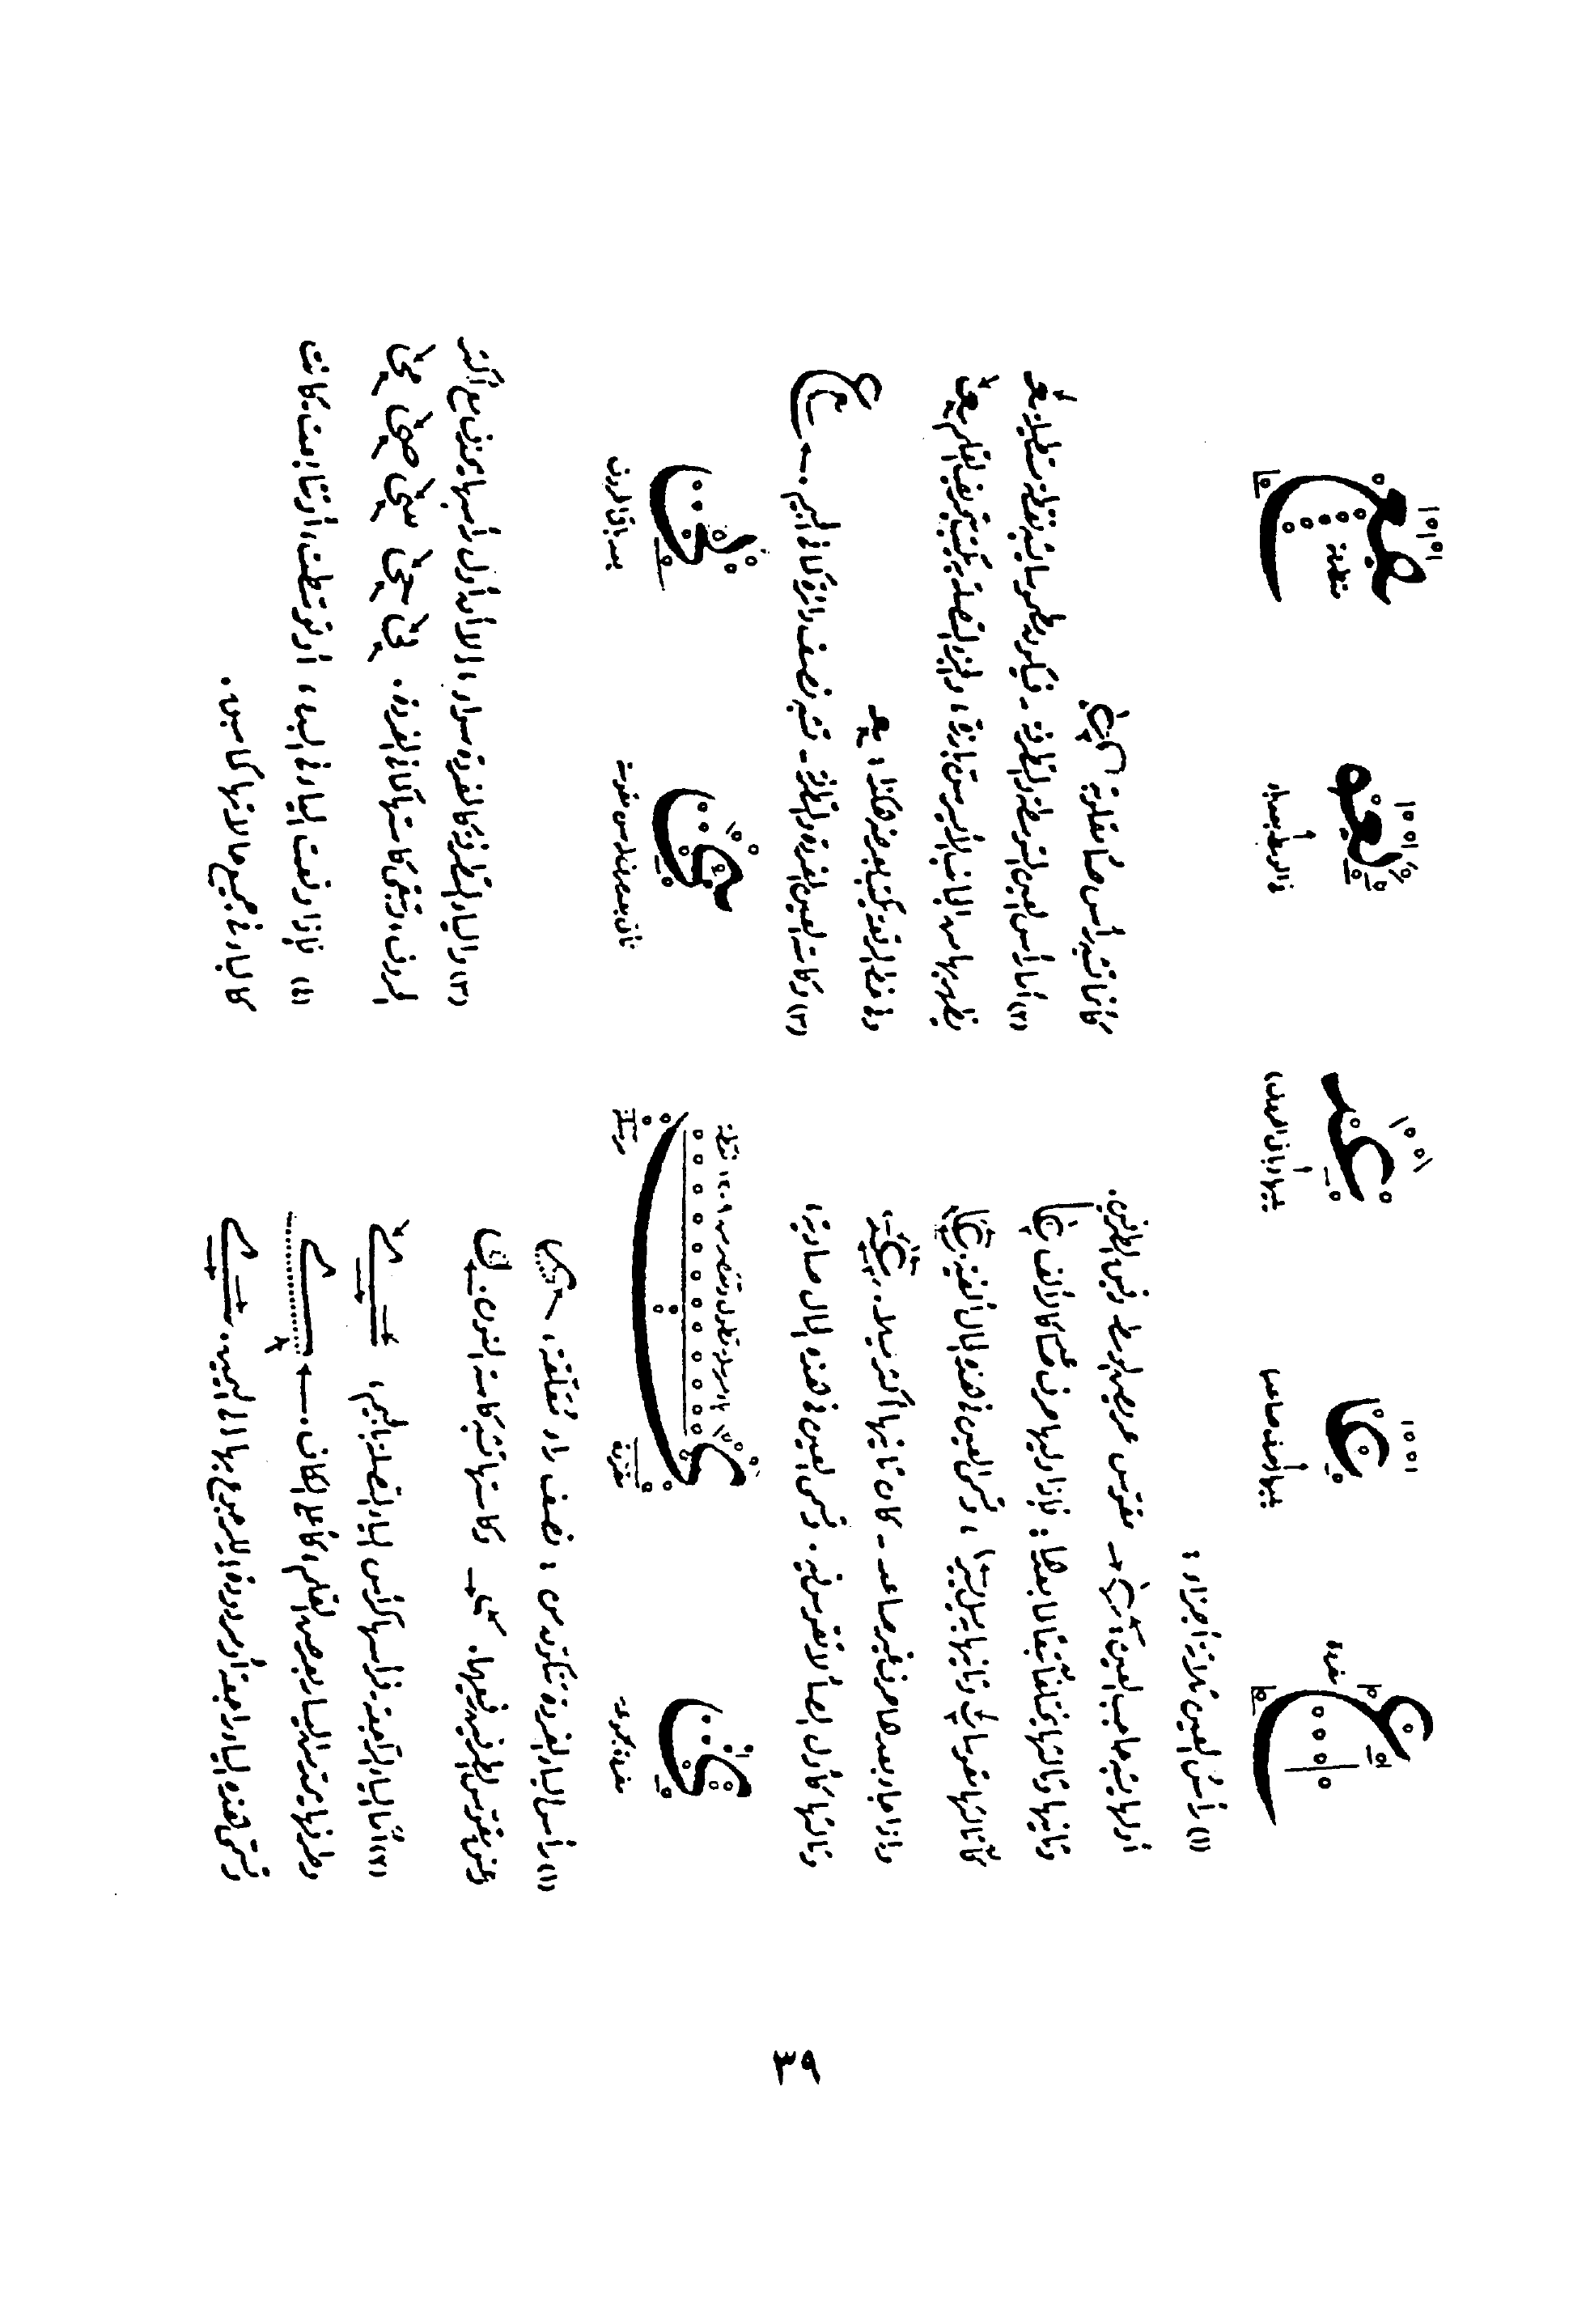 مفردة
بعدها حرف صاعد
بعدها باقي الحروف
في الوسط بعد باء
متطرفة
(١) رأس العين ثلاثة أجزاء :
أولها يشبه حاجب العين ، مقوس عريض الوسط دقيق الطرفين .
وثانيها وثالثها يختلفان تبعًا لما بعدها : فإذا وليها حرف كالألف عا
كان ثالثها مقوسا وثانيها يميل يسيرًا ، وتسمى العين في هذه الحال ألفية . عا
وإذا جاء بعدها حرف غير صاعد - كان ثانيها أكثر ميلا .. عد
وثالثها كالأول وتسمى العين في هذه الحال صادية ،
كأنها تشبه رأس صاد مقلوبة
(٢) أما رأس العين المتوسطة والمتطرفة - فيكون مطموسا يشبه نقطة مستطيلة بعد
يظهر بها من الجانب الأيسر سن بارزة ، والجزء المتصلة به يكتب بحرف القلم بعد
وفي خط الرقعة يكتب بعرضه هكذا : بعد
(٣) وكاسة العين المفردة والمتطرفة - تشبه نصف دائرة كما في الجيم . ع
مفردة مجموعة
مفردة
مرسلة
ياء مرسلة تطول وتقصر من ٩ - ١٢ نقطة
بعد باقي الحروف
(١) رأس الياء المفردة تتكون من : نصف راء مُعَلّقة ،
وعنق مقوس الطرفين رفيعها . وكاستها تشبه كاسة النون .
(٢) أمّا الياء الراجعة - فرأسها كرأس الياء المتصلة بالجيم ،
وطرفها يمتد لليسار بعرض القلم ، كألف الكاف .
وتسمى هذه الياء راجعة أو مردودة ، للرجوع بها إلى اليمين .
(٣) والياء المتطرفة كالمفردة سواء ، إلا أن أول رأسها يحذف مع أكثر
الحروف ، وتبقى كاستها كما في المفردة . لى حى سى صى عى
(٤) فإذا وقعت الياء في البدء ، أو توسطت ، كانت
كالباء في جميع حالاتها كما سبق .
٣٩